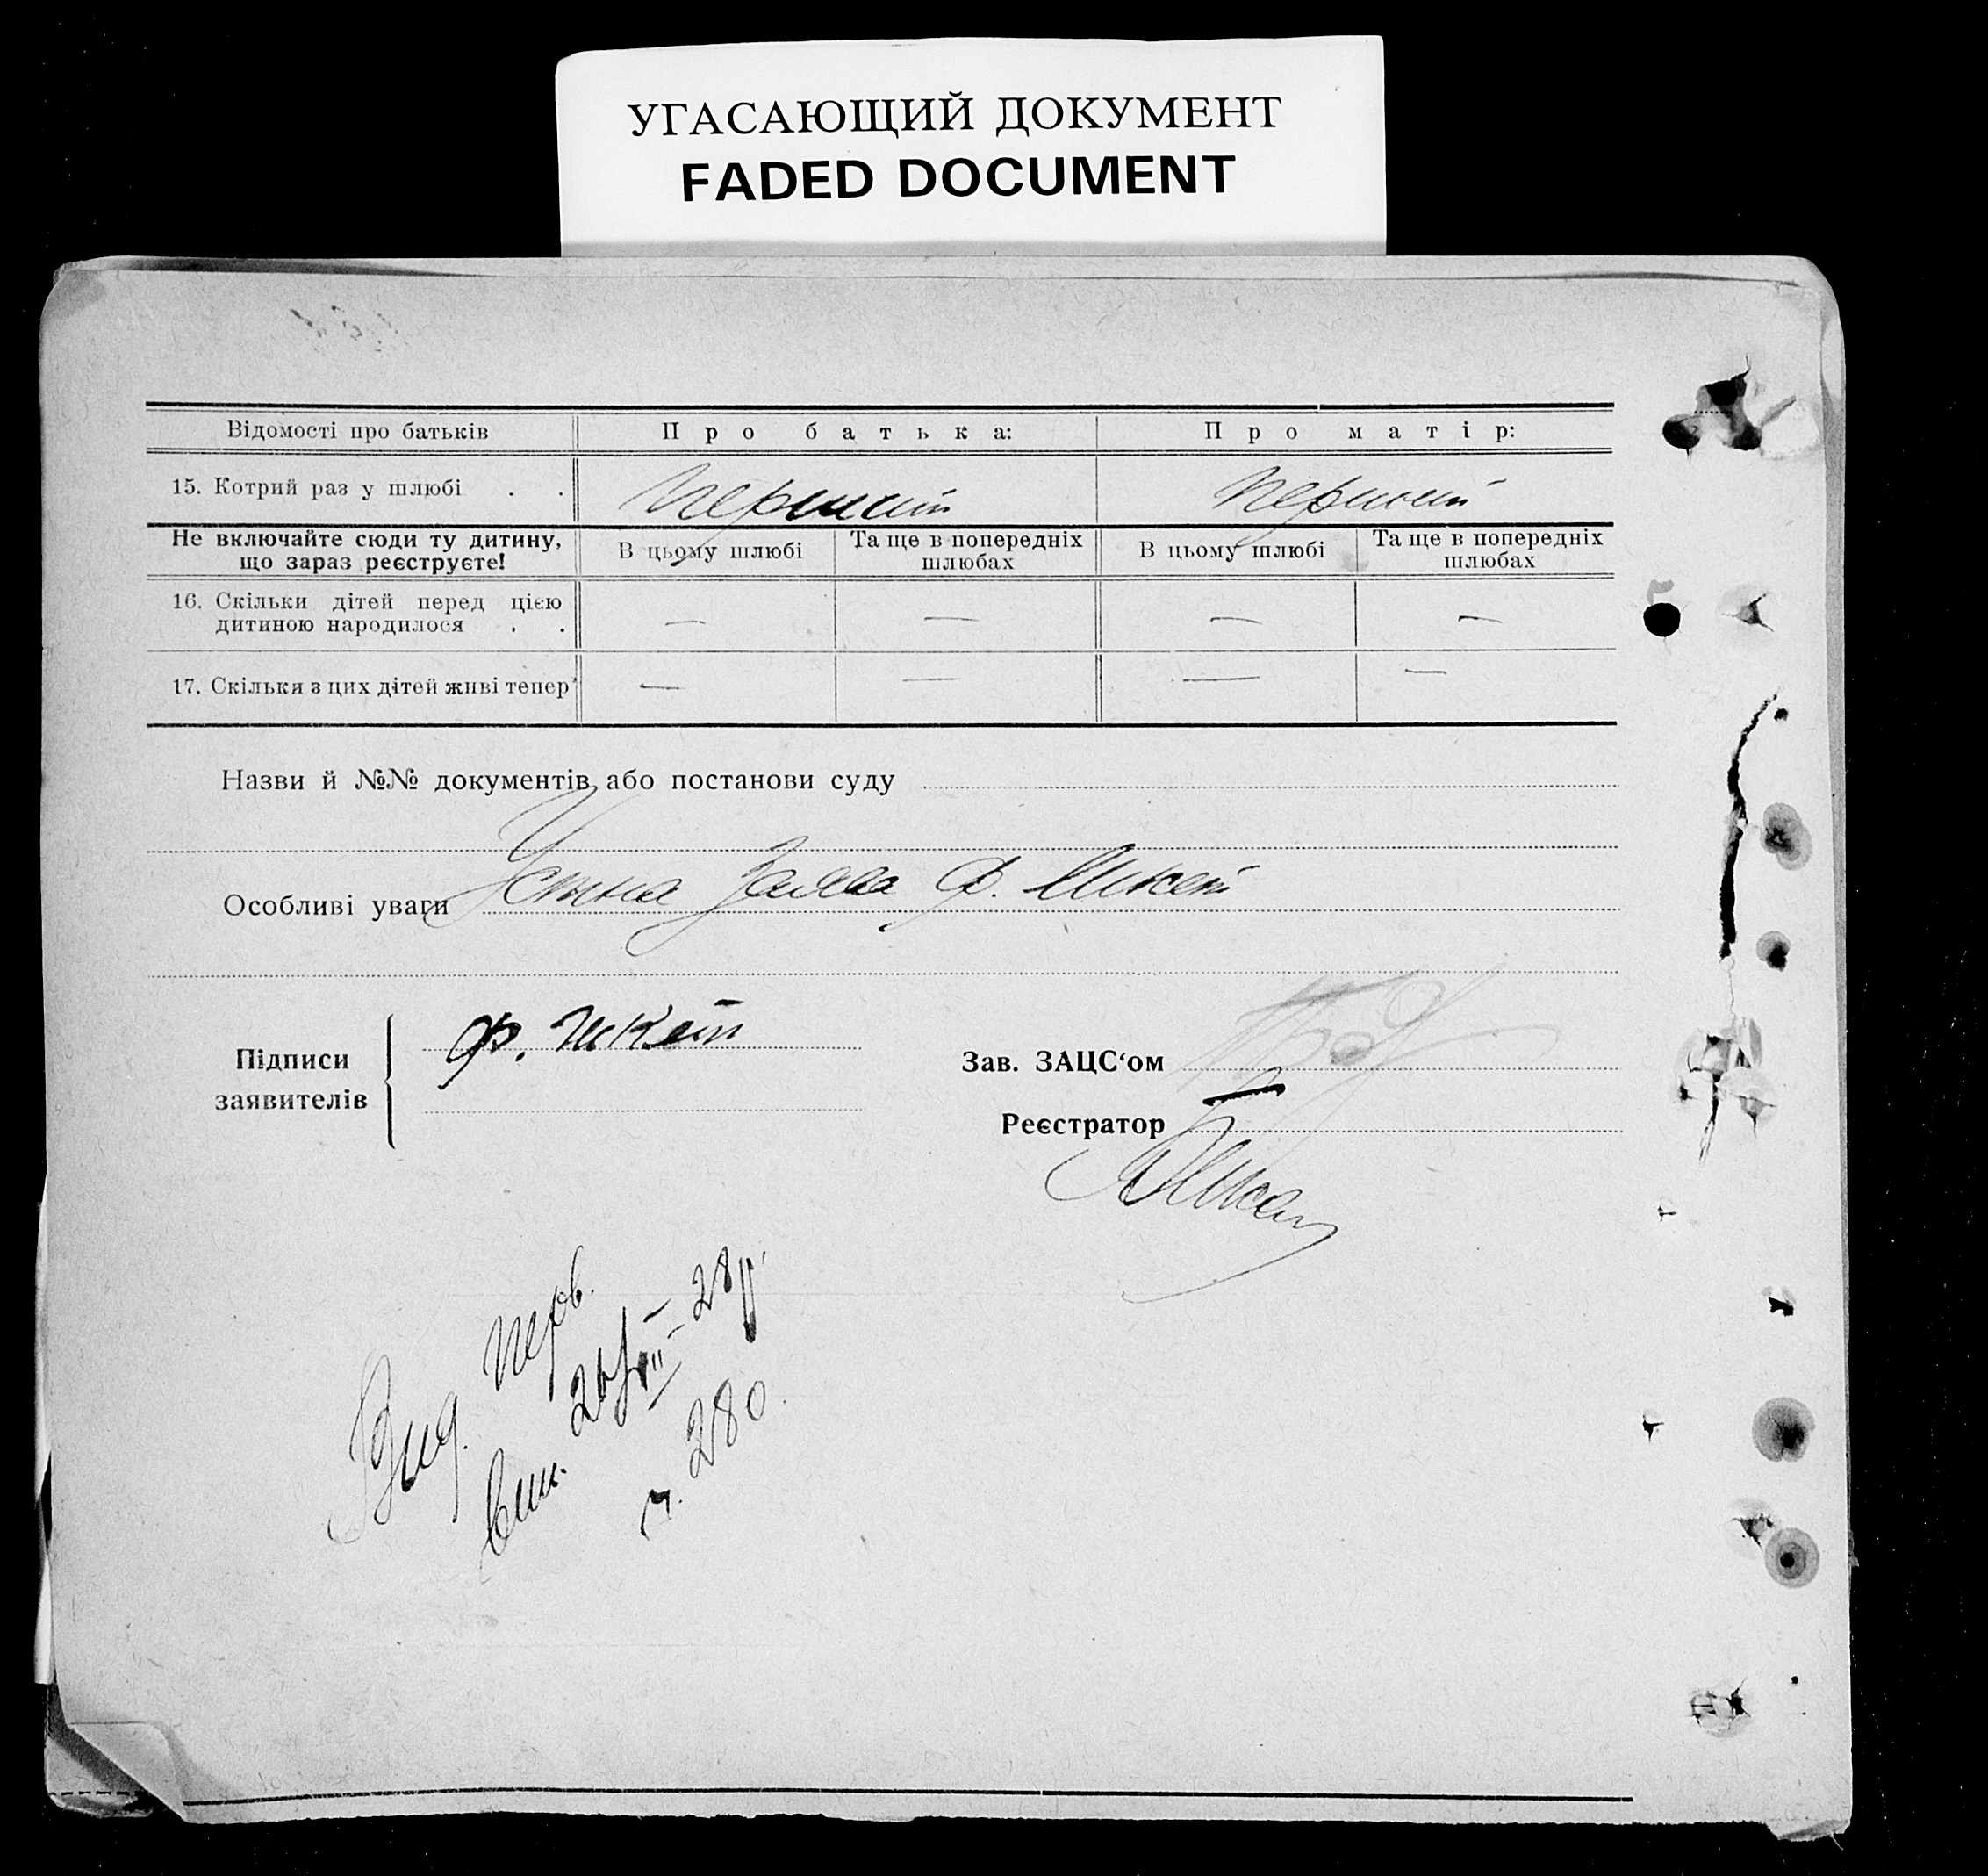 УГАСАЮЩИЙ ДОКУМЕНТ
FADED DOCUMENT
Відомості про батьків Про батька: Про матір:
15. Котрий раз у шлюбі . . перший перший
Не включайте сюди ту дитину, що зараз реєструєте! В цьому шлюбі Та ще в попередніх шлюбах В цьому шлюбі Та ще в попередніх шлюбах
16. Скільки дітей перед цією
дитиною народилося . . — — — —
17. Скільки з цих дітей живі тепер — — — —
Назви й №№ документів або постанови суду
Особливі уваги Устна заява Ф.
Підписи
заявителів
Ф.
Зав. ЗАЦС‘ом
Реєстратор
Вид. перв.
вип. 26/VII–28р.
ч. 280.